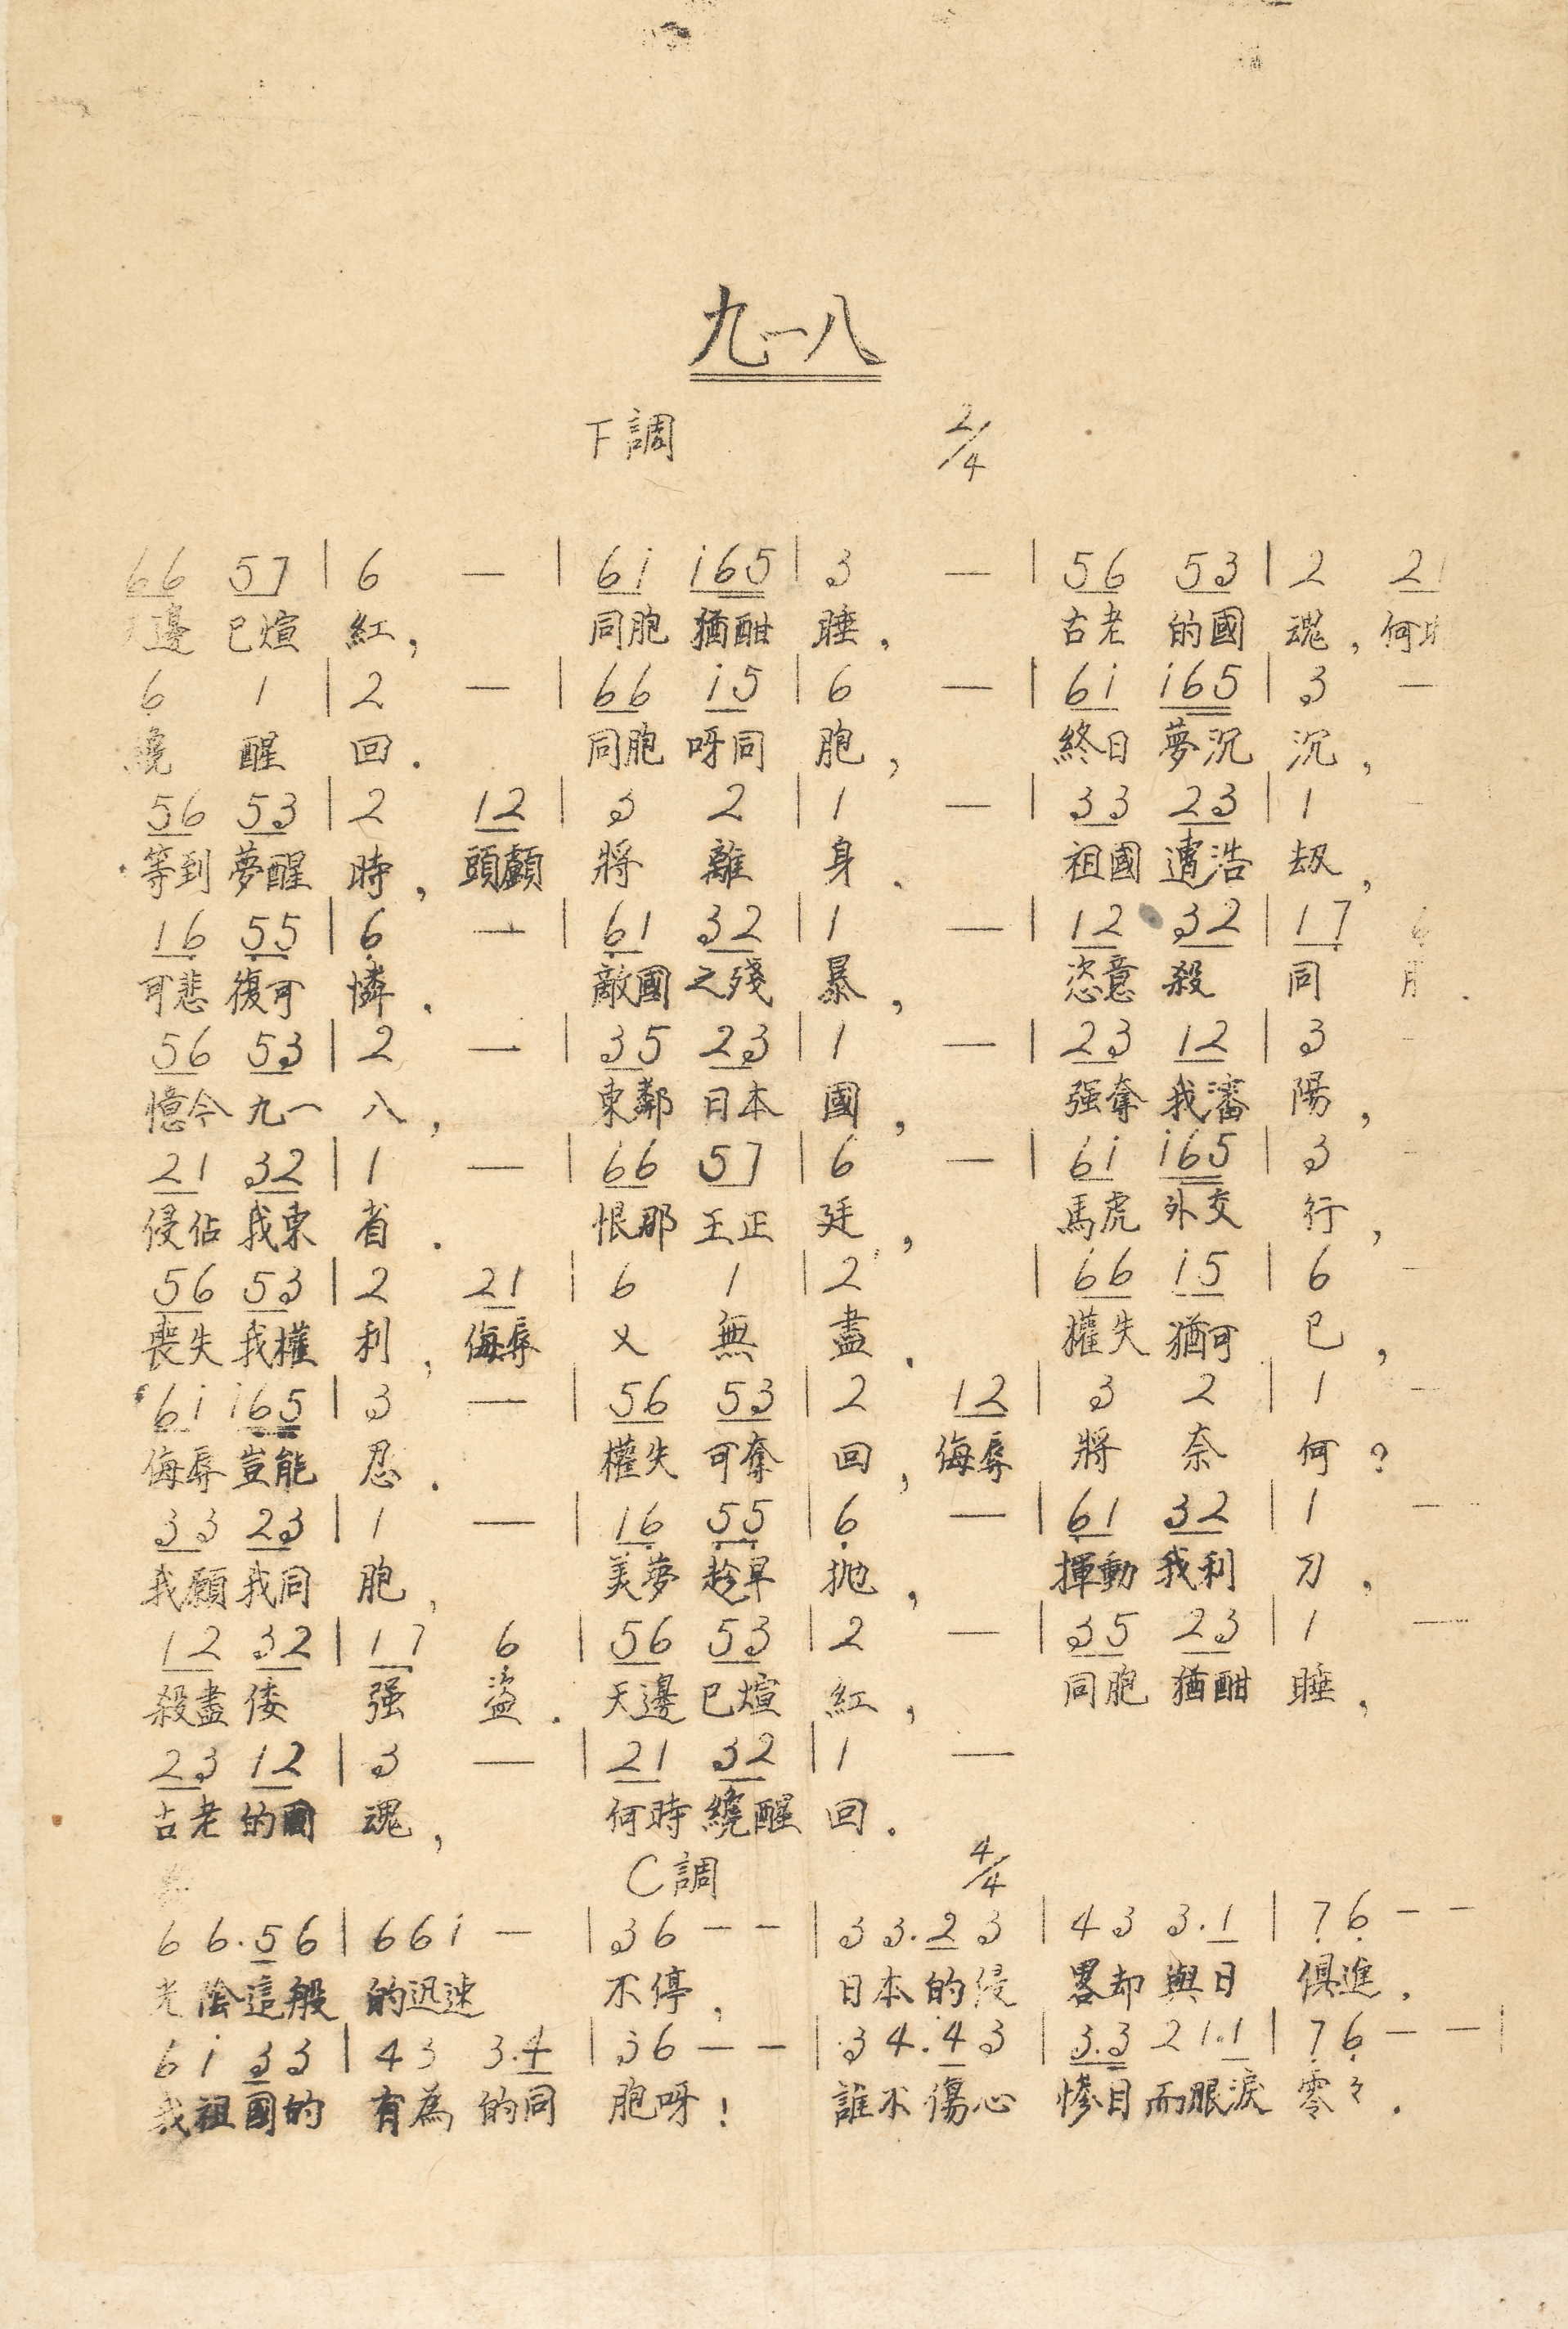 九一八
F調 2/4
66 57 | 6 — | 6i i65 | 3 — | 56 53 | 2 21
邊已煊紅， 同胞猶酣睡， 古老的國魂，何
6 1 | 2 — | 66 i5 | 6 — | 6i i65 | 3 —
纔醒回． 同胞呀同胞， 終日夢沉沉，
56 53 | 2 12 | 3 2 | 1 — | 33 23 | 1 —
等到夢醒時，頭顱將離身． 祖國遭浩劫，
16 55 | 6 — | 61 32 | 1 — | 12 32 | 17 6
可悲復可憐． 敵國之殘暴， 恣意殺同．
56 53 | 2 — | 35 23 | 1 — | 23 12 | 3 -
憶今九一八， 東鄰日本國， 强奪我瀋陽，
21 32 | 1 — | 66 57 | 6 — | 6i i65 | 3 -
侵佔我東省． 恨那王正廷， 馬虎外交行，
56 53 | 2 21 | 6 1 | 2 | 66 i5 | 6 -
喪失我權利，侮辱又無盡． 權失猶可已，
6i i65 | 3 — | 56 53 | 2 12 | 3 2 | 1 —
侮辱豈能忍． 權失可奪回，侮辱將奈何？
33 23 | 1 — | 16 55 | 6 — | 61 32 | 1 —
我願我同胞， 美夢趁早拋， 揮動我利刀，
12 32 | 17 6 | 56 53 | 2 — | 35 23 | 1 —
殺盡倭强盜．天邊已煊紅， 同胞猶酣睡，
23 12 | 3 — | 21 32 | 1 —
古老的國魂， 何時纔醒回．
C調 4/4
6 6.56 | 66i — | 36 — — | 33.23 | 43 3.1 | 76 — —
光陰這般的迅速 不停， 日本的侵畧却與日俱進．
6i 33 | 43 3.4 | 36 — — | 34.43 | 3.3 21.1 | 76 — — |
我祖國的有為的同胞呀！ 誰不傷心慘目而眼淚零々．